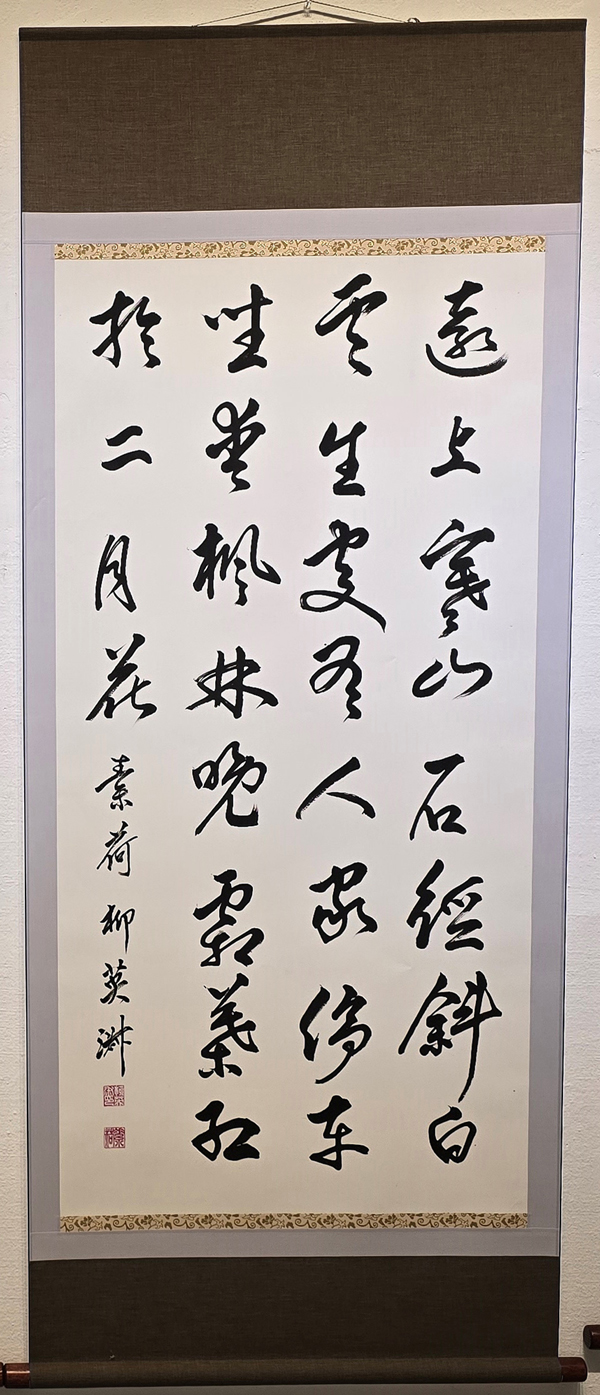 遠上寒山石徑斜白
雲生處有人家停車
坐愛楓林晚霜葉紅
於二月花 素荷 柳英淑